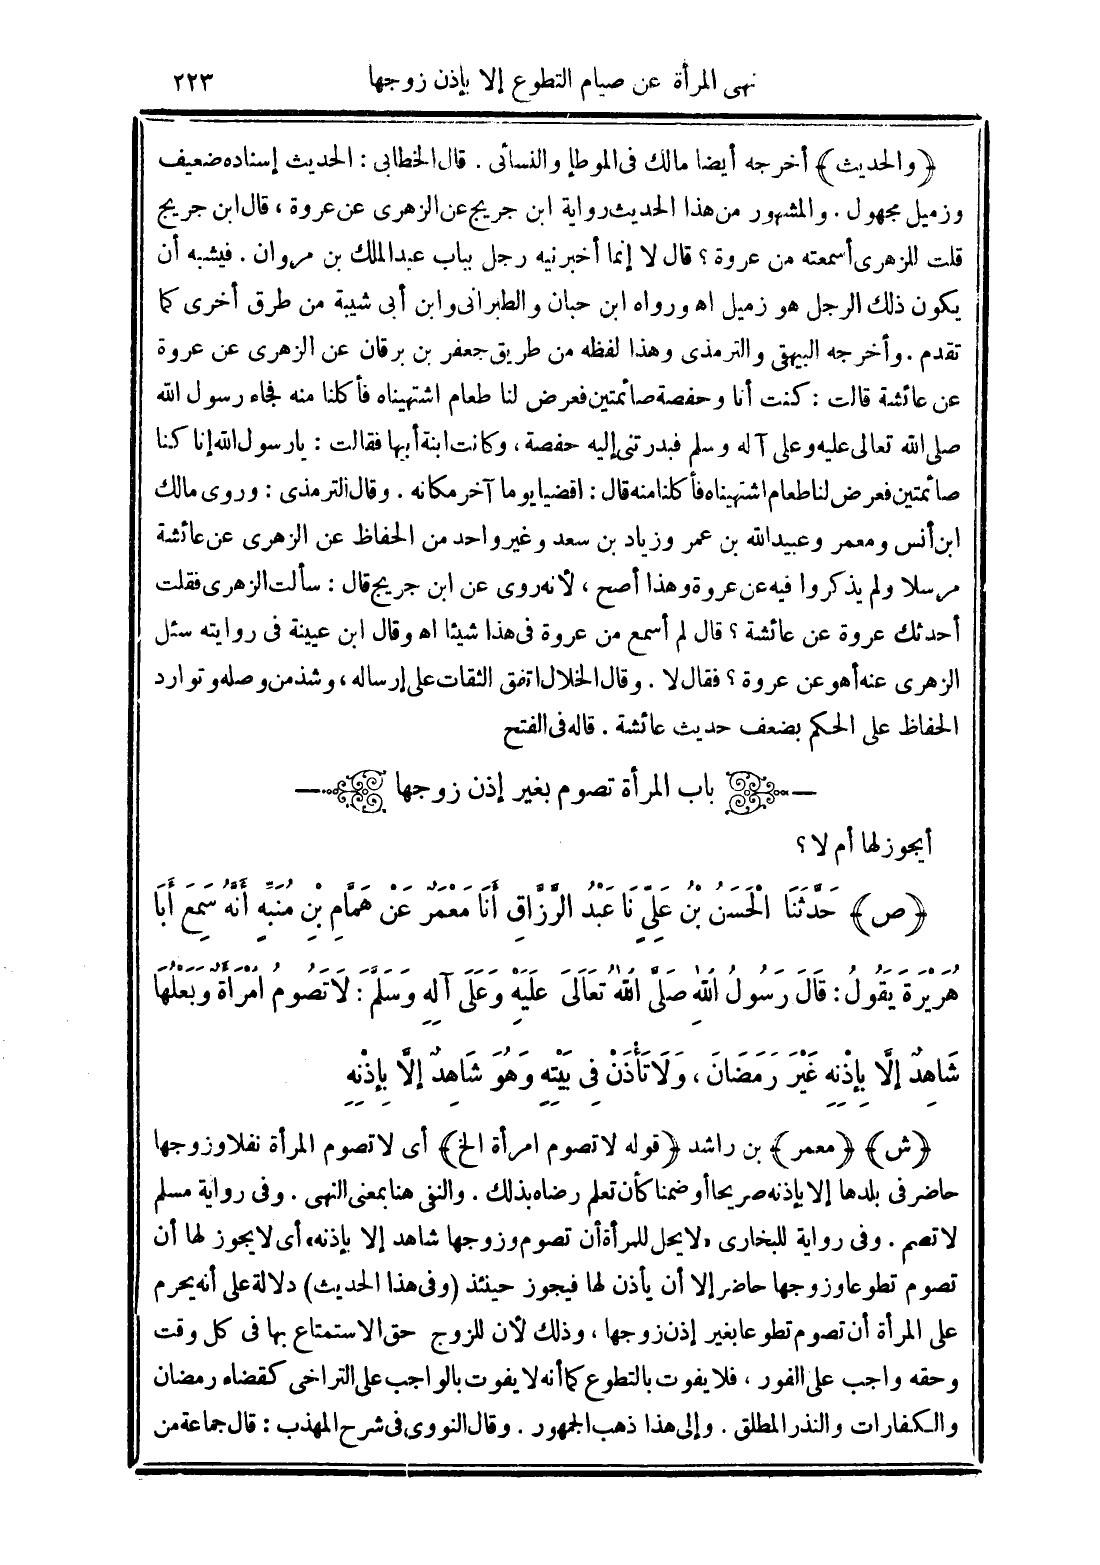 نهى المرأة عن صيام التطوع إلا بإذن زوجها ٢٢٣
﴿والحديث﴾ أخرجه أيضا مالك فى الموطإ والنسائى . قال الخطابى : الحديث إسناده ضعيف
وزميل مجهول . والمشهور من هذا الحديث رواية ابن جريج عن الزهرى عن عروة ، قال ابن جريج
قلت للزهرى أسمعته من عروة ؟ قال لا إنما أخبرنيه رجل بباب عبدالملك بن مروان . فيشبه أن
يكون ذلك الرجل هو زميل اه ورواه ابن حبان والطبرانى وابن أبى شيبة من طرق أخرى كما
تقدم . وأخرجه البيهقى والترمذى وهذا لفظه من طريق جعفر بن برقان عن الزهرى عن عروة
عن عائشة قالت : كنت أنا وحفصة صائمتين فعرض لنا طعام اشتهيناه فأكلنا منه فجاء رسول الله
صلى الله تعالى عليه وعلى آله وسلم فبدرتنى إليه حفصة ، وكانت ابنة أبيها فقالت : يارسول الله إنا كنا
صائمتين فعرض لنا طعام اشتهيناه فأكلنا منه قال : اقضيا يوما آخر مكانه . وقال الترمذى : وروى مالك
ابن أنس ومعمر وعبيدالله بن عمر وزياد بن سعد وغير واحد من الحفاظ عن الزهرى عن عائشة
مرسلا ولم يذكروا فيه عن عروة وهذا أصح ، لأنه روى عن ابن جريج قال : سألت الزهرى فقلت
أحدثك عروة عن عائشة ؟ قال لم أسمع من عروة فى هذا شيئا اه وقال ابن عيينة فى روايته سئل
الزهرى عنه أهو عن عروة ؟ فقال لا . وقال الخلال اتفق الثقات على إرساله ، وشذ من وصله وتوارد
الحفاظ على الحكم بضعف حديث عائشة . قاله فى الفتح
باب المرأة تصوم بغير إذن زوجها
أيجوز لها أم لا ؟
﴿ص﴾ حَدَّثَنَا الْحَسَنُ بْنُ عَلِيٍّ نَا عَبْدُ الرَّزَّاقِ أَنَا مَعْمَرٌ عَنْ هَمَّامِ بْنِ مُنَبِّهٍ أَنَّهُ سَمِعَ أَبَا
هُرَيْرَةَ يَقُولُ : قَالَ رَسُولُ اللهِ صَلَّى اللهُ تَعَالَى عَلَيْهِ وَعَلَى آلِهِ وَسَلَّمَ : لَا تَصُومُ امْرَأَةٌ وَبَعْلُهَا
شَاهِدٌ إِلَّا بِإِذْنِهِ غَيْرَ رَمَضَانَ ، وَلَا تَأْذَنْ فِى بَيْتِهِ وَهُوَ شَاهِدٌ إِلَّا بِإِذْنِهِ
﴿ش﴾ ﴿معمر﴾ بن راشد ﴿قوله لا تصوم امرأة الخ﴾ أى لا تصوم المرأة نفلا وزوجها
حاضر فى بلدها إلا بإذنه صريحا أو ضمنا كأن تعلم رضاه بذلك . والنفى هنا بمعنى النهى . وفى رواية مسلم
لا تصم . وفى رواية للبخارى «لا يحل للمرأة أن تصوم وزوجها شاهد إلا بإذنه» أى لا يجوز لها أن
تصوم تطوعا وزوجها حاضر إلا أن يأذن لها فيجوز حينئذ (وفى هذا الحديث) دلالة على أنه يحرم
على المرأة أن تصوم تطوعا بغير إذن زوجها ، وذلك لأن للزوج حق الاستمتاع بها فى كل وقت
وحقه واجب على الفور ، فلا يفوت بالتطوع كما أنه لا يفوت بالواجب على التراخى كقضاء رمضان
والكفارات والنذر المطلق . وإلى هذا ذهب الجمهور . وقال النووى فى شرح المهذب : قال جماعة من